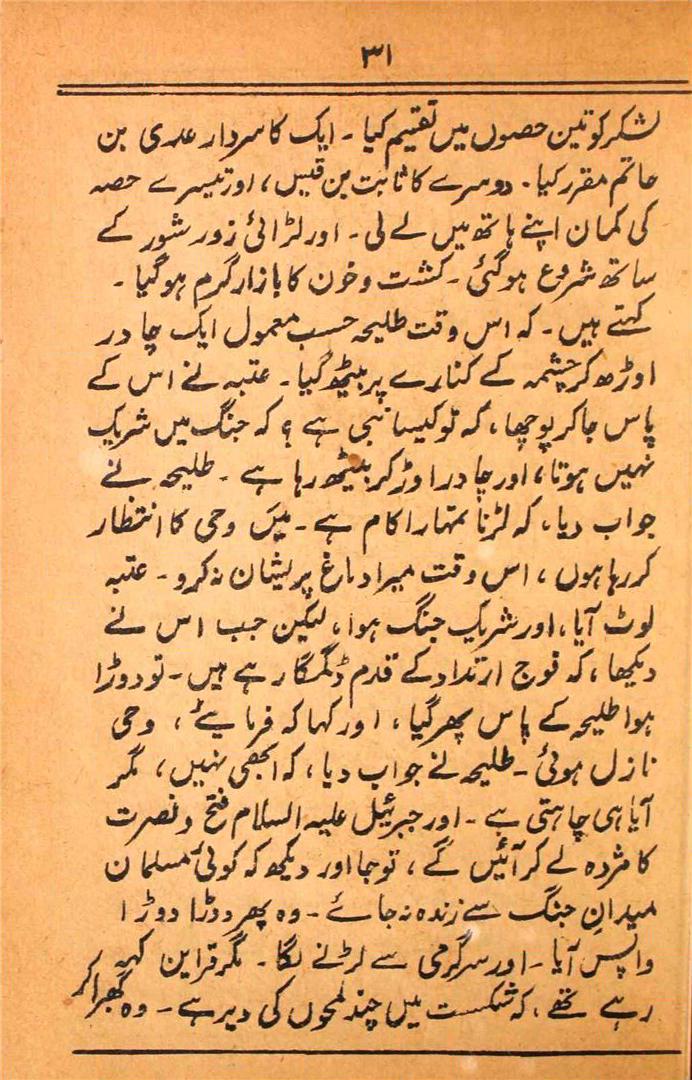 ۳۱
لشکر کو تین حصوں میں تقسیم کیا ۔ ایک کا سردار عدی بن
حاتم مقرر کیا ۔ دوسرے کا ثابت بن قیس ، اور تیسرے حصہ
کی کمان اپنے ہاتھ میں لے لی ۔ اور لڑائی زور شور کے
ساتھ شروع ہو گئی ۔ کشت و خون کا بازار گرم ہو گیا ۔
کہتے ہیں ۔ کہ اس وقت طلیحہ حسب معمول ایک چادر
اوڑھ کر چشمہ کے کنارے پر بیٹھ گیا ۔ عتبہ نے اُس کے
پاس جا کر پوچھا ، کہ تو کیسا نبی ہے ؟ کہ جنگ میں شریک
نہیں ہوتا ، اور چادر اوڑ کر بیٹھ رہا ہے ۔ طلیحہ نے
جواب دیا ، کہ لڑنا تمہارا کام ہے ۔ میں وحی کا انتظار
کر رہا ہوں ، اس وقت میرا دماغ پریشان نہ کرو ۔ عتبہ
لوٹ آیا ، اور شریک جنگ ہوا ، لیکن جب اس نے
دیکھا ، کہ فوج ارتداد کے قدم ڈگمگا رہے ہیں ۔ تو دوڑا
ہوا طلیحہ کے پاس پھر گیا ، اور کہا کہ فرمایئے ، وحی
نازل ہوئی ۔ طلیحہ نے جواب دیا ، کہ ابھی نہیں ، مگر
آیا ہی چاہتی ہے ۔ اور جبرئیل علیہ السلام فتح و نصرت
کا مژدہ لے کر آئیں گے ، تو جا اور دیکھ کہ کوئی مسلمان
میدانِ جنگ سے زندہ نہ جائے ۔ وہ پھر دوڑا دوڑا
واپس آیا ۔ اور سرگرمی سے لڑنے لگا ۔ مگر قراین کہہ
رہے تھے ، کہ شکست میں چند لمحوں کی دیر ہے ۔ وہ گھبرا کر